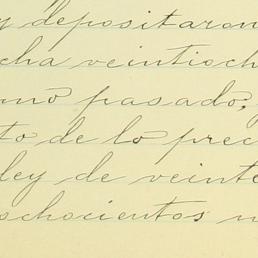 y depositaron
cha veintioch
imo pasado,
to de lo prec
ley de veinte
ochocientos n